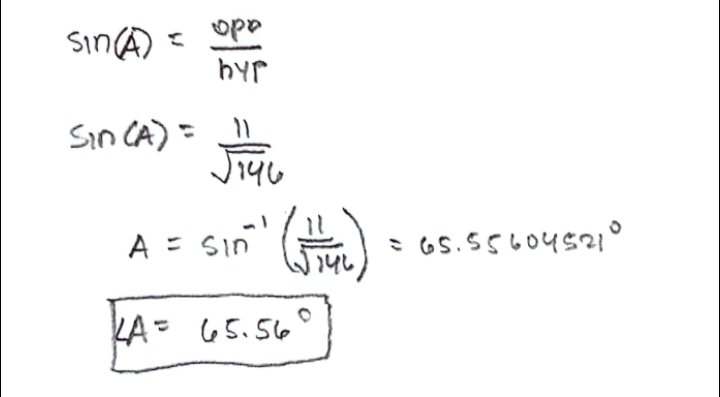 sin(A) = opp/hyp
sin(A) = 11/√146
A = sin⁻¹(11/√146) = 65.55604521°
∠A = 65.56°